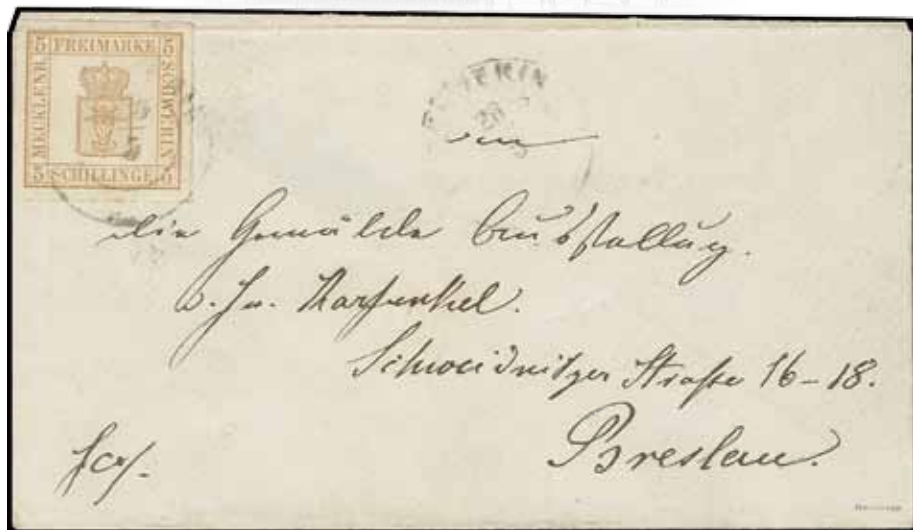 5 FREIMARKE 5
MECKLENB.
SCHWERIN
5 SCHILLINGE 5
SCHWERIN
20
An
die Gemälde Ausstellung.
v. Hn. Karfunkel.
Schweidnitzer Straße 16-18.
Breslau.